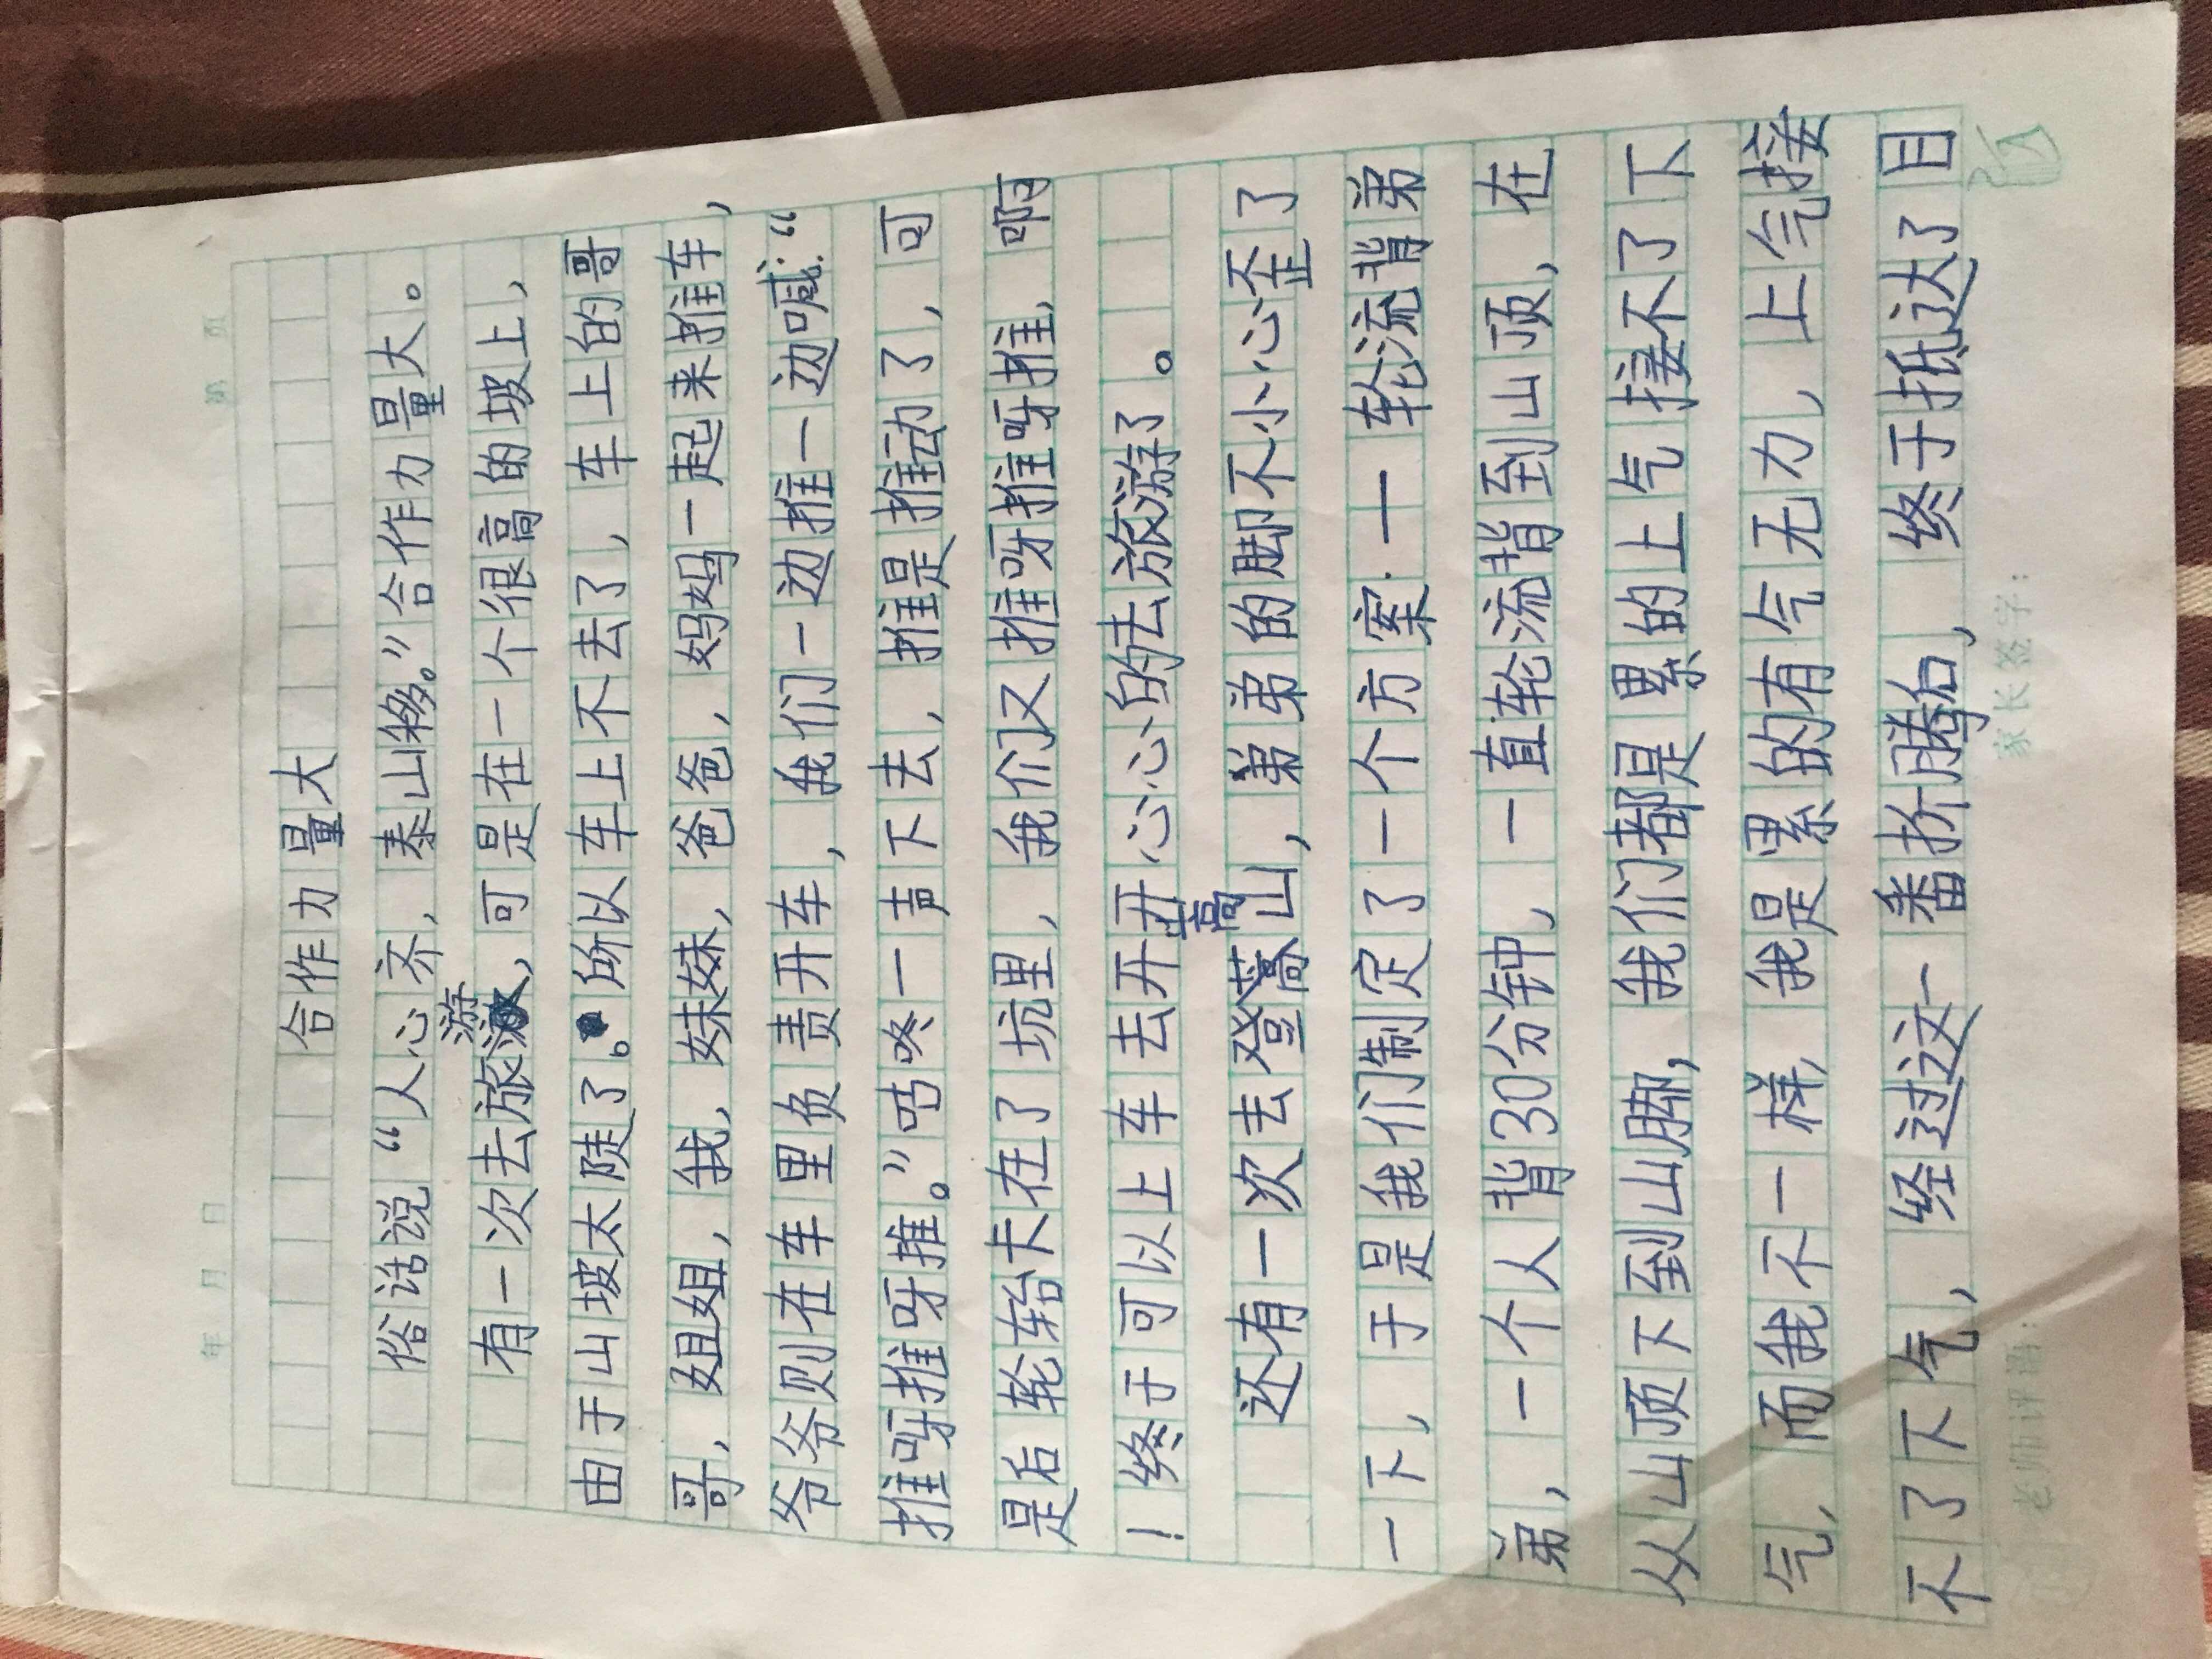 年 月 日
第 页
合作力量大
俗话说“人心齐，泰山移。”合作力量大。
有一次去旅游，可是在一个很高的坡上，
由于山坡太陡了。所以车上不去了，车上的哥
哥，姐姐，我，妹妹，爸爸，妈妈一起来推车，
爷爷则在车里负责开车，我们一边推一边喊：“
推呀推呀推。”咕咚一声下去，推是推动了，可
是后轮轮胎卡在了坑里，我们又推呀推呀推，啊
！终于可以上车去开开心心的去旅游了。
还有一次去登高山，弟弟的脚不小心歪了
一下，于是我们制定了一个方案——轮流背弟
弟，一个人背30分钟，一直轮流背到山顶，在
从山顶下到山脚，我们都是累的上气接不了下
气，而我不一样，我是累的有气无力，上气接
不了下气，经过这一番折腾后，终于抵达了目
老师评语：
家长签字：